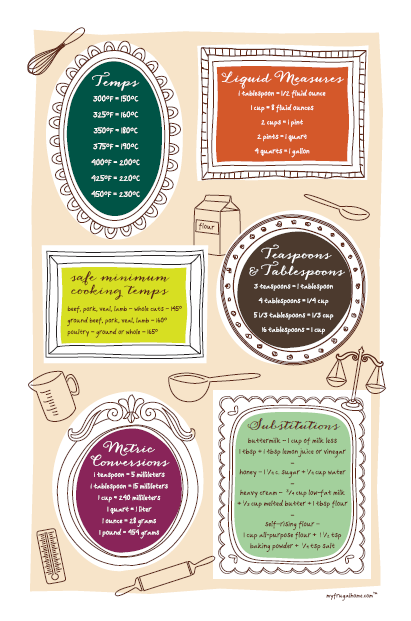 Temps
300°F = 150°C
325°F = 160°C
350°F = 180°C
375°F = 190°C
400°F = 200°C
425°F = 220°C
450°F = 230°C
Liquid Measures
1 tablespoon = 1/2 fluid ounce
1 cup = 8 fluid ounces
2 cups = 1 pint
2 pints = 1 quart
4 quarts = 1 gallon
flour
safe minimum
cooking temps
beef, pork, veal, lamb – whole cuts – 145°
ground beef, pork, veal, lamb – 160°
poultry – ground or whole – 165°
Teaspoons
& Tablespoons
3 teaspoons = 1 tablespoon
4 tablespoons = 1/4 cup
5 1/3 tablespoons = 1/3 cup
16 tablespoons = 1 cup
Metric
Conversions
1 teaspoon = 5 milliliters
1 tablespoon = 15 milliliters
1 cup = 240 milliliters
1 quart = 1 liter
1 ounce = 28 grams
1 pound = 454 grams
Substitutions
buttermilk – 1 cup of milk less
1 tbsp + 1 tbsp lemon juice or vinegar
–
honey – 1 1/4 c. sugar + 1/4 cup water
–
heavy cream – 3/4 cup low-fat milk
+ 1/3 cup melted butter + 1 tbsp flour
–
self-rising flour –
1 cup all-purpose flour + 1 1/2 tsp
baking powder + 1/4 tsp salt
myfrugalhome.com™